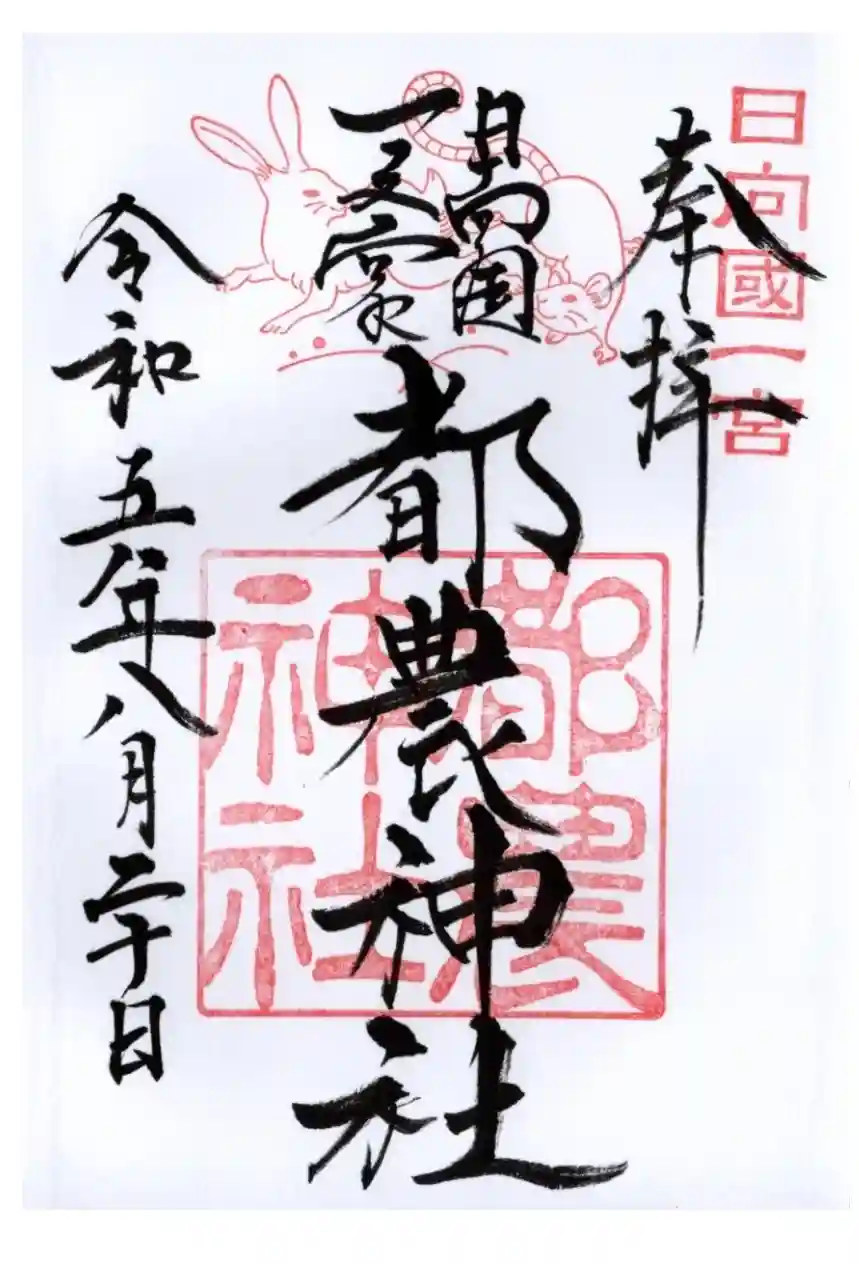 日向國一宮
奉拝
日向国
一之宮
都農神社
都農
神社
令和五年八月二十日